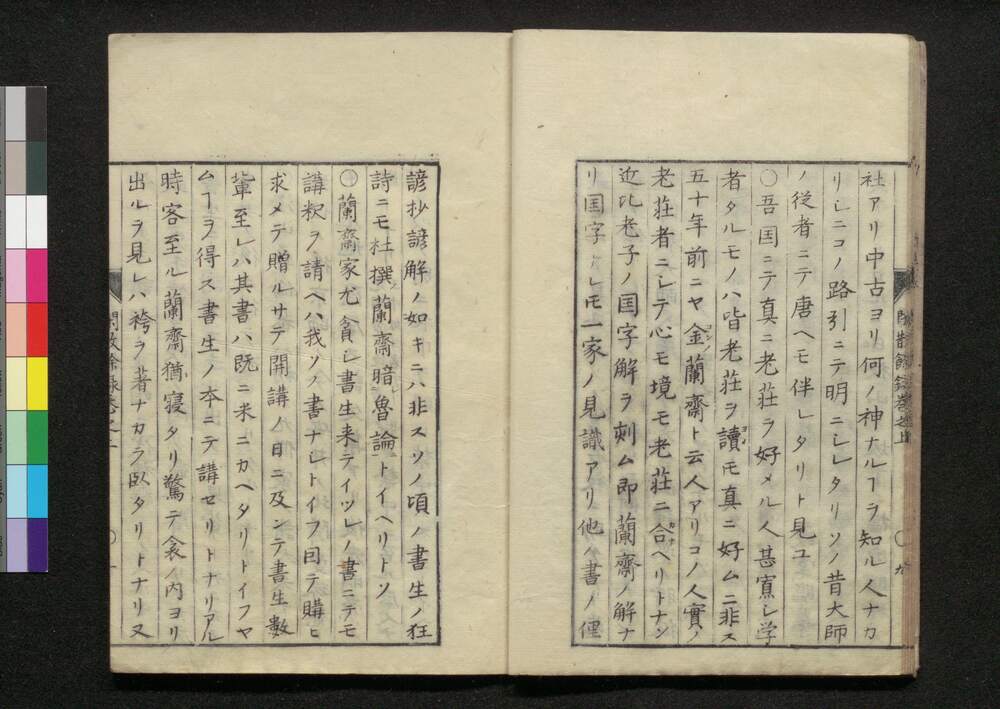 社アリ中古ヨリ何ノ神ナルヿヲ知ル人ナカ
リシニコノ路引ニテ明ニシレタリソノ昔大師
ノ従者ニテ唐ヘモ伴レタリト見ユ
〇吾国ニテ真ニ老荘ヲ好メル人甚寡シ学
者タルモノハ皆老荘ヲ讀ヨメ𪜈真ニ好ムニ非ス
五十年前ニヤ金コン蘭齋ト云人アリコノ人實ノ
老荘者ニシテ心モ境モ老荘ニ合カナヘリトナン
近比老子ノ国字解ヲ刻ム即蘭齋ノ解ナ
リ国字ナレ𪜈一家ノ見識アリ他ノ書ノ俚
諺抄諺解ノ如キニハ非スソノ頃ノ書生ノ狂
詩ニモ杜撰ノ蘭齋暗シ魯論ニトイヘリトソ
〇蘭齋家尤貧シ書生来テイツレノ書ニテモ
講釈ヲ請ヘハ我ソノ書ナシトイフ因テ購ヒ
求メテ贈ルサテ開講ノ日ニ及ンテ書生數
輩至レハ其書ハ既ニ米ニカヘタリトイフヤ
ムヿヲ得ス書生ノ本ニテ講セリトナリアル
時客至ル蘭齋猶寝タリ驚テ衾ノ内ヨリ
出ルヲ見レハ袴ヲ著ナカラ臥タリトナリ又